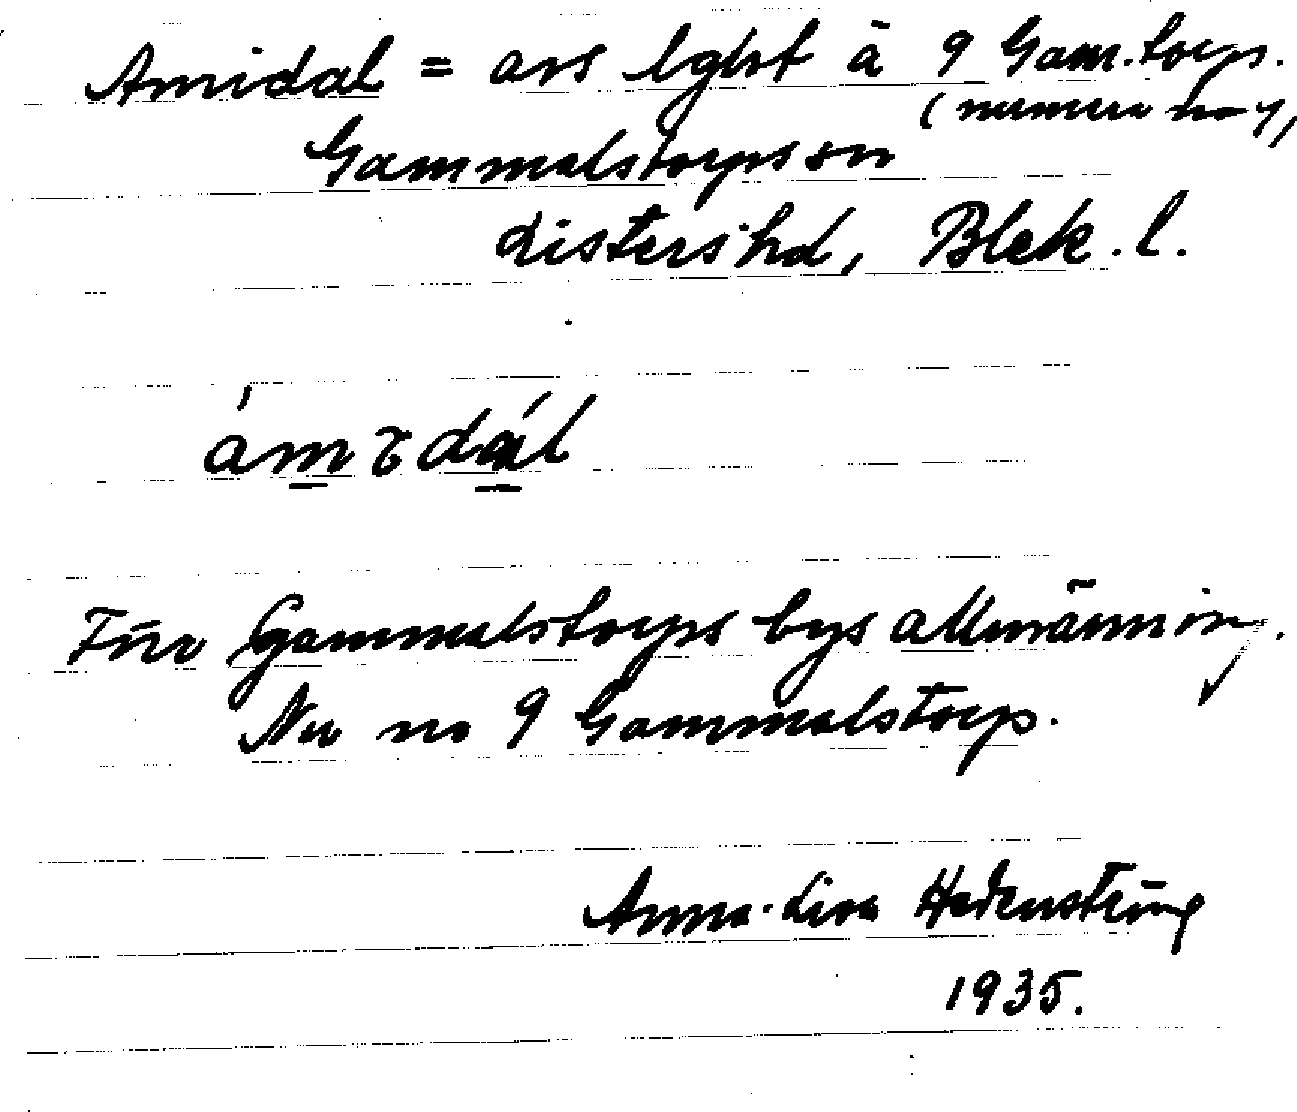 Amidal = avs lght å 9 Gam.torp.
(numera no 9,
Gammalstorps sn
Listers hd, Blek. l.
ámꞇdál
Förr Gammalstorps bys allmänning.
Nu no 9 Gammalstorp.
Anna-Lisa Hedenstéing
1935.